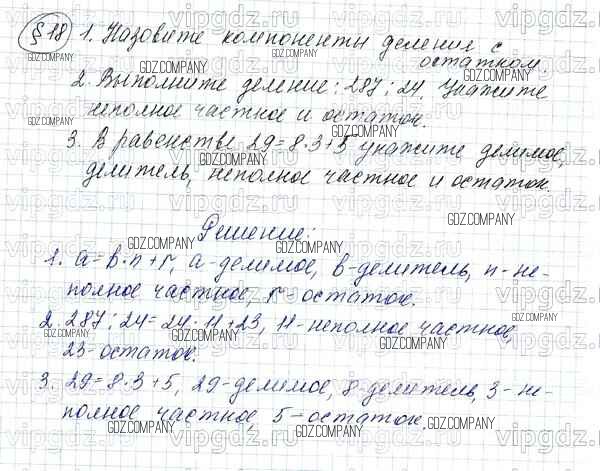 §18 1. Назовите компоненты деления с
остатком.
2. Выполните деление: 287 : 24. Укажите
неполное частное и остаток.
3. В равенстве 29 = 8·3+5 укажите делимое,
делитель, неполное частное и остаток.
Решение:
1. a = b·n + r, a - делимое, b - делитель, n - не-
полное частное, r - остаток.
2. 287 : 24 = 24 · 11 + 23, 11 - неполное частное,
23 - остаток.
3. 29 = 8·3+5, 29 - делимое, 8 - делитель, 3 - не-
полное частное, 5 - остаток.
vipgdz.com
GDZ.COMPANY